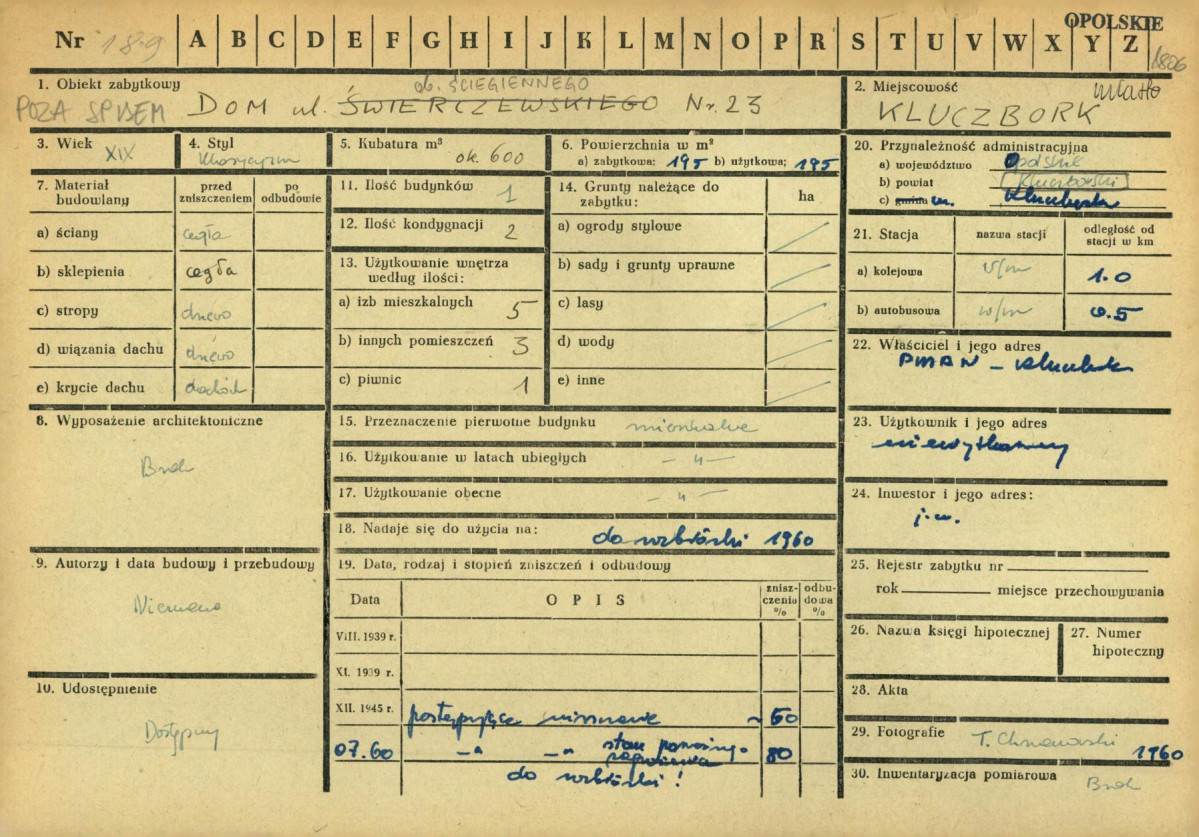 OPOLSKIE
Nr 189 A B C D E F G H I J K L M N O P R S T U V W X Y Z
1806
1. Obiekt zabytkowy
ob. ŚCIEGIENNEGO
POZA SPISEM DOM ul. ŚWIERCZEWSKIEGO Nr. 23
2. Miejscowość miasto
KLUCZBORK
3. Wiek XIX
4. Styl
5. Kubatura m³ ok. 600
6. Powierzchnia w m²
a) zabytkowa: 195 b) użytkowa: 195
20. Przynależność administracyjna
a) województwo Opolskie
b) powiat (Kluczborski)
c) gmina m. Kluczbork
7. Materiał budowlany
przed zniszczeniem
po odbudowie
a) ściany cegła
b) sklepienia cegła
c) stropy drewo
d) wiązania dachu drewo
e) krycie dachu
11. Ilość budynków 1
12. Ilość kondygnacji 2
13. Użytkowanie wnętrza
według ilości:
a) izb mieszkalnych 5
b) innych pomieszczeń 3
c) piwnic 1
14. Grunty należące do
zabytku:
ha
a) ogrody stylowe
b) sady i grunty uprawne
c) lasy
d) wody
e) inne
21. Stacja
nazwa stacji
odległość od
stacji w km
a) kolejowa w/m 1.0
b) autobusowa w/m 0.5
22. Właściciel i jego adres
8. Wyposażenie architektoniczne
Brak
15. Przeznaczenie pierwotne budynku mieszkalne
16. Użytkowanie w latach ubiegłych — „ —
17. Użytkowanie obecne — „ —
18. Nadaje się do użycia na: do rozbiórki 1960
23. Użytkownik i jego adres
nieużytkowany
24. Inwestor i jego adres:
j.w.
9. Autorzy i data budowy i przebudowy
Nieznane
19. Data, rodzaj i stopień zniszczeń i odbudowy
Data
OPIS
znisz-
czenia
%
odbu-
dowa
%
VIII. 1939 r.
XI. 1939 r.
XII. 1945 r. postępujące niszczenie ~ 50
07.60 — „ — „ stan poważnego
zagrożenia 80
do rozbiórki!
25. Rejestr zabytku nr
rok miejsce przechowywania
26. Nazwa księgi hipotecznej
27. Numer
hipoteczny
28. Akta
10. Udostępnienie
Dostępny
29. Fotografie T. Chrzanowski 1960
30. Inwentaryzacja pomiarowa Brak